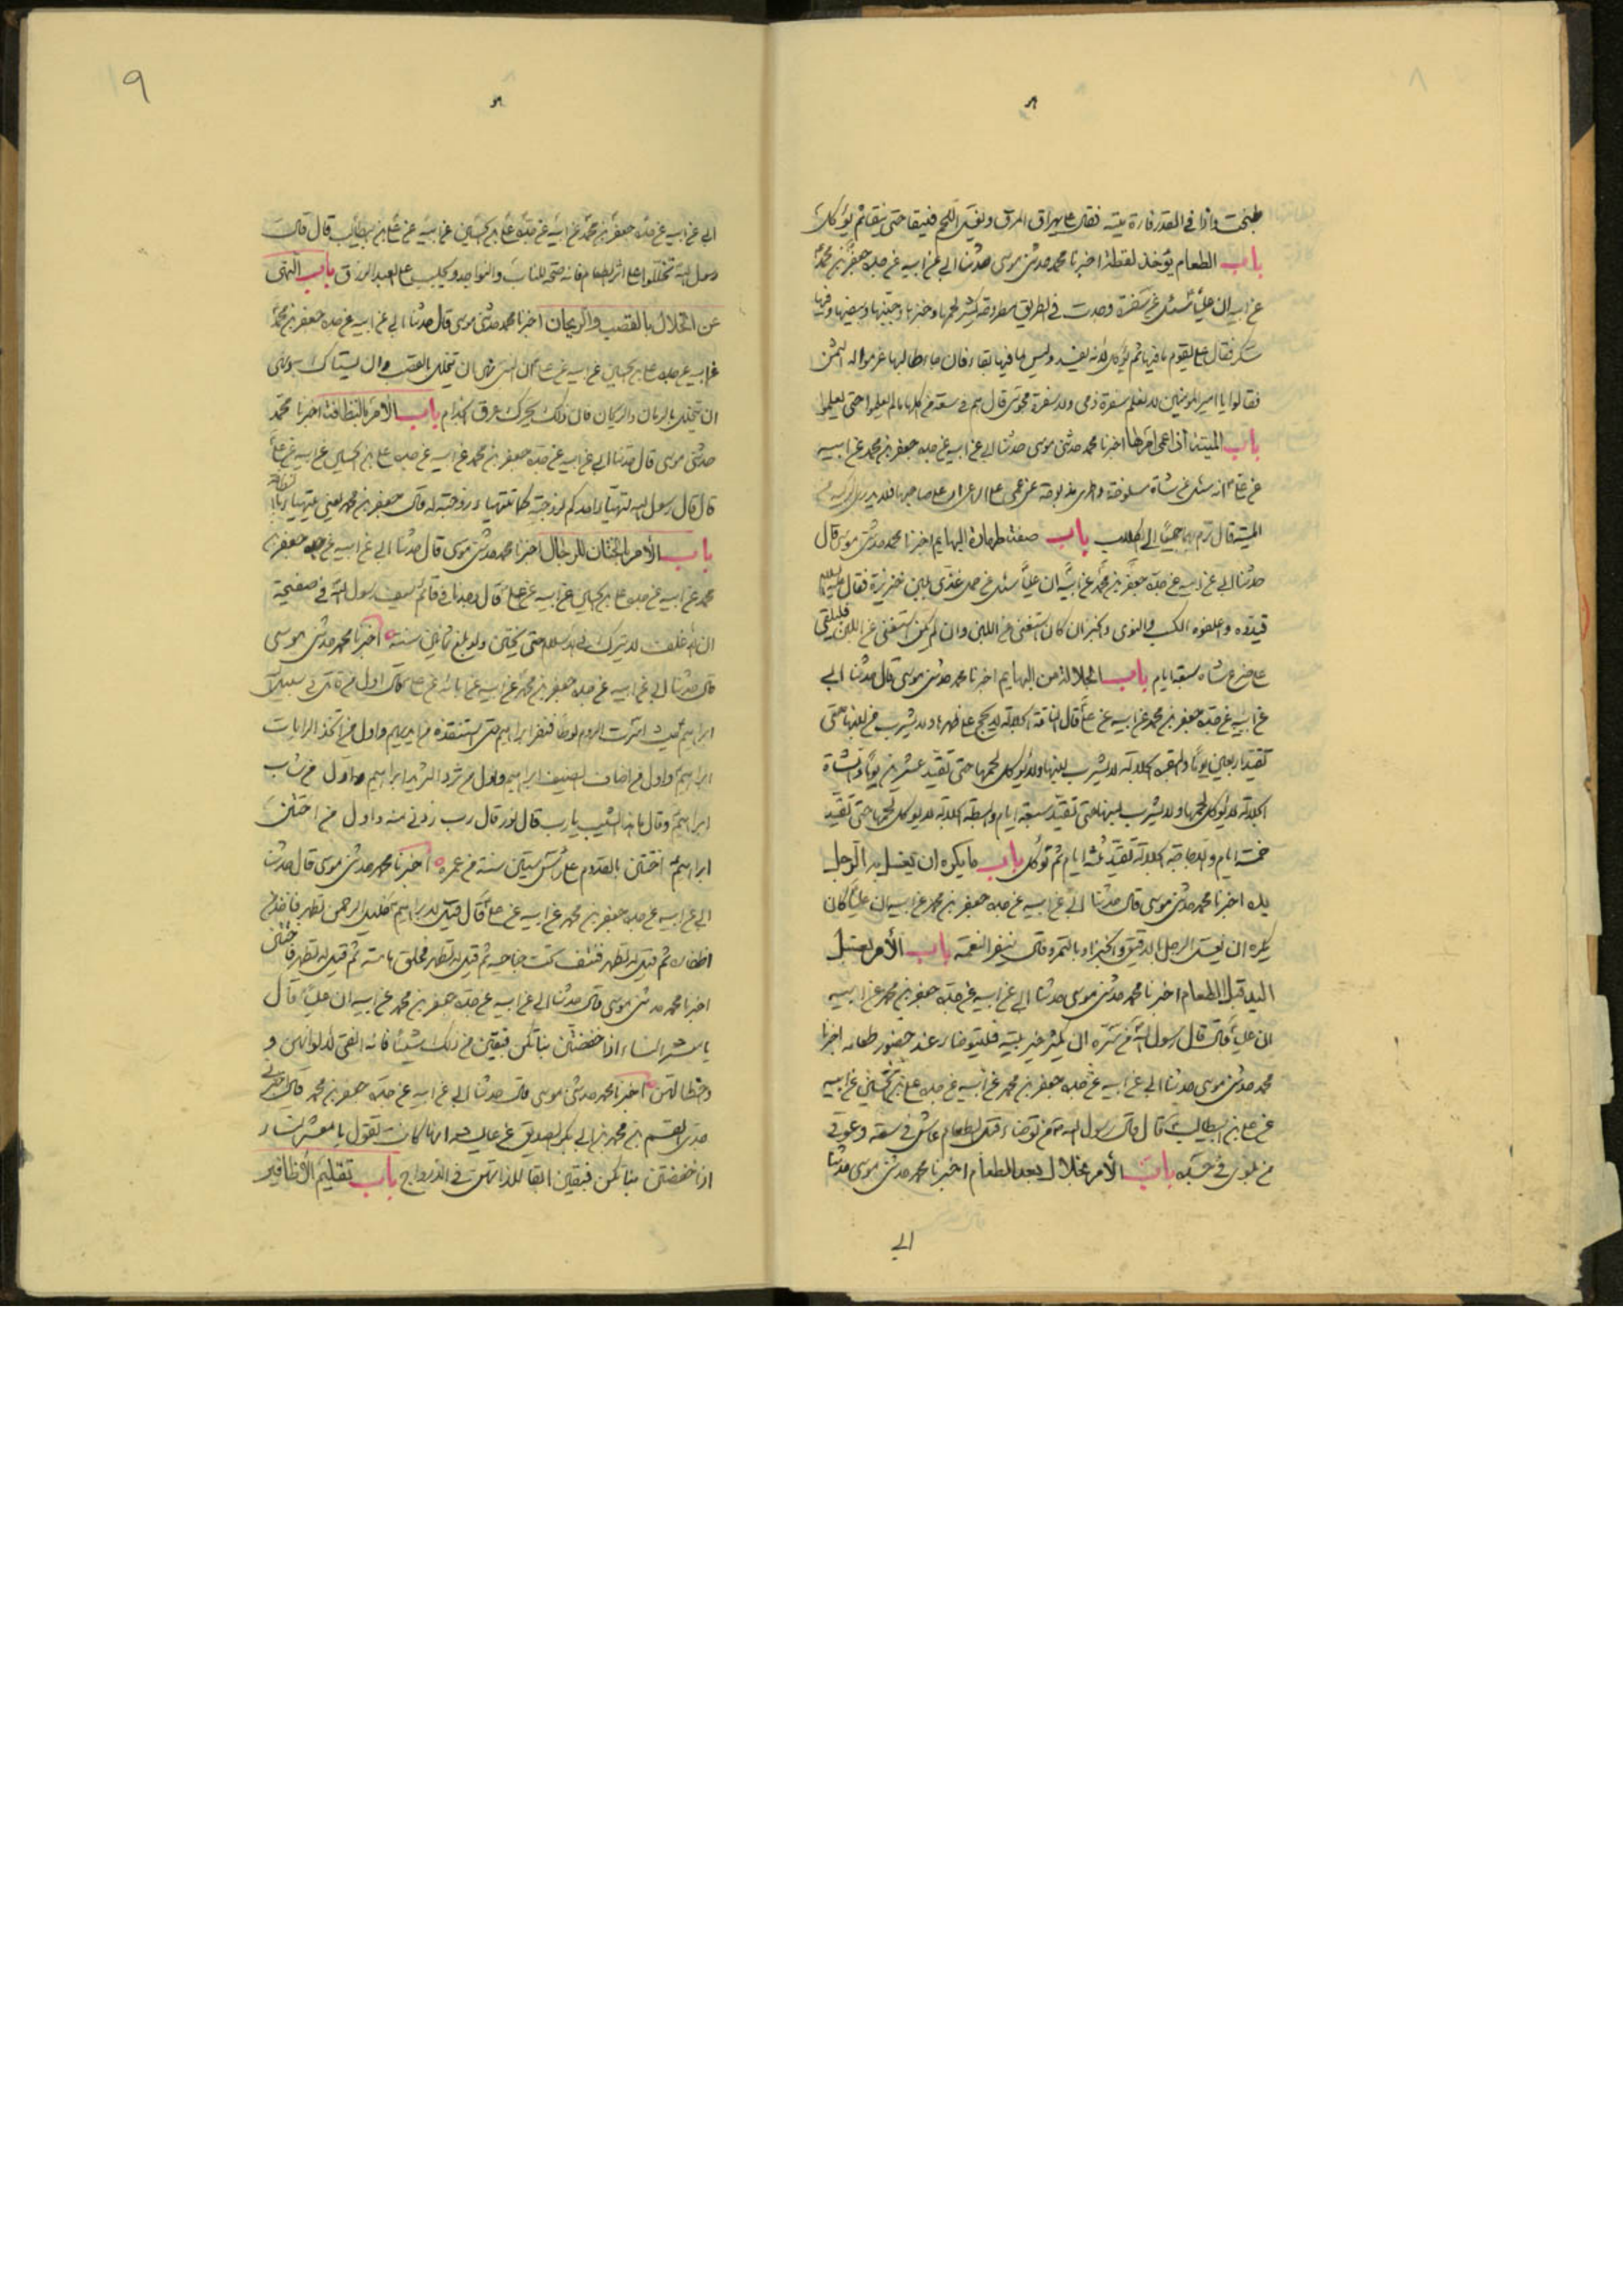 ٨
طبخت واذا في القدر فارة ميتة فقال علي يهراق المرق ويغسل اللحم فينقا حتى ينقا ثم يؤكل
باب الطعام يؤخذ لقطة اخبرنا محمد حدثني موسى حدثنا ابي عن ابيه عن جده جعفر بن محمد
عن ابيه ان عليا سئل عن سفرة وجدت في الطريق مطروحة كثير لحمها وخبزها وجبنها وبيضها وفيها
سكر فقال علي يقوم ما فيها ثم يؤكل لانه يفسد وليس لما فيها بقاء فان جاء طالبها غرموا له الثمن
فقالوا يا امير المؤمنين لا نعلم سفرة ذمي ولا سفرة مجوسي قال هم في سعة من اكلها ما لم يعلموا حتى يعلموا
باب الميتة اخبرنا محمد حدثني موسى حدثنا ابي عن ابيه عن جده جعفر بن محمد عن ابيه
عن علي انه سئل عن شاة مسلوخة واخرى مذبوحة عن عمي على الراعي او على صاحبها فلا يدري الذكية من
الميتة قال يرم بهما جميعا الى الكلاب باب صفة طهارة البهايم اخبرنا محمد حدثني موسى قال
حدثنا ابي عن ابيه عن جده جعفر بن محمد عن ابيه ان عليا سئل عن حمل غذي بلبن خنزيرة فقال
قيدوه واعلفوه الكسب والنوى والخبز ان كان استغنى عن اللبن وان لم يكن استغنى عن اللبن فليلقى
على ضرع شاة سبعة ايام باب الجلالة من البهايم اخبرنا محمد حدثني موسى قال حدثنا ابي
عن ابيه عن جده جعفر بن محمد عن ابيه عن علي قال الناقة الجلالة لا يحج على ظهرها ولا يشرب من لبنها حتى
تقيد اربعين يوما والبقرة الجلالة لا يشرب لبنها ولا يؤكل لحمها حتى تقيد عشرين يوما والشاة
الجلالة لا يؤكل لحمها ولا يشرب لبنها حتى تقيد سبعة ايام والبطة الجلالة لا يؤكل لحمها حتى تقيد
خمسة ايام والدجاجة الجلالة تقيد ثلثة ايام ثم تؤكل باب ما يكره ان يغسل به الرجل
يده اخبرنا محمد حدثني موسى قال حدثنا ابي عن ابيه عن جده جعفر بن محمد عن ابيه ان عليا كان
يكره ان يغسل الرجل بالدقيق والخبز او بالتمر وقال ينفر النعمة باب الأمر بغسل
اليد قبل الطعام اخبرنا محمد حدثني موسى حدثنا ابي عن ابيه عن جده جعفر بن محمد عن ابيه
ان عليا قال قال رسول الله من سره ان يكثر خير بيته فليتوضأ عند حضور طعامه اخبرنا
محمد حدثني موسى حدثنا ابي عن ابيه عن جده جعفر بن محمد عن ابيه عن جده علي بن الحسين عن ابيه
عن علي بن ابيطالب قال قال رسول الله من توضأ قبل الطعام عاش في سعة وعوفي
من بلوى في جسده باب الأمر بخلال بعد الطعام اخبرنا محمد حدثني موسى حدثنا
ابي
٩
ابي عن ابيه عن جده جعفر بن محمد عن ابيه عن جده علي بن الحسين عن ابيه عن علي بن ابيطالب قال قال
رسول الله تخللوا على اثر الطعام فانه صحة للناب والنواجد ويجلب على العبد الرزق باب النهى
عن الخلال بالقصب والريحان اخبرنا محمد حدثني موسى قال حدثنا ابي عن ابيه عن جده جعفر بن محمد
عن ابيه عن جده علي بن الحسين عن ابيه عن علي ان النبي نهى ان يتخلل بالقصب وان يستاك به ونهى
ان يتخلل بالرمان والريحان فان ذلك يحرك عرق الجذام باب الأمر بالنظافة اخبرنا محمد
حدثني موسى قال حدثنا ابي عن ابيه عن جده جعفر بن محمد عن ابيه عن جده علي بن الحسين عن ابيه عن علي
قال قال رسول الله ليتهيأ احدكم لزوجته كما تتهيأ زوجته له قال جعفر بن محمد يعني يتهيأ بالنظافة
باب الأمر بالختان للرجال اخبرنا محمد حدثني موسى قال حدثنا ابي عن ابيه عن جده جعفر بن
محمد عن ابيه عن جده علي بن الحسين عن ابيه عن علي قال وجدنا في قائم سيف رسول الله في صفيحة
ان الاغلف لا يترك في الاسلام حتى يختتن ولو بلغ ثمانين سنة اخبرنا محمد حدثني موسى
قال حدثنا ابي عن ابيه عن جده جعفر بن محمد عن ابيه عن آبائه عن علي قال اول من قاتل في سبيل الله
ابراهيم حيث اسرت الروم لوطا فنفر ابراهيم حتى استنقذه من ايديهم واول من اتخذ الرايات
ابراهيم واول من اضاف الضيف ابراهيم واول من ثرد الثريد ابراهيم واول من شاب
ابراهيم وقال ما هذا الشيب يا رب قال نور قال رب زدني منه واول من اختتن
ابراهيم اختتن بالقدوم على رأس ستين سنة من عمره اخبرنا محمد حدثني موسى قال حدثنا
ابي عن ابيه عن جده جعفر بن محمد عن ابيه عن علي قال قيل لابراهيم خليل الرحمن تطهر فاخذ من
اظفاره ثم قيل له تطهر فنتف تحت جناحيه ثم قيل له تطهر فحلق هامته ثم قيل له تطهر فاختتن
اخبرنا محمد حدثني موسى قال حدثنا ابي عن ابيه عن جده جعفر بن محمد عن ابيه ان عليا قال
يا معشر النساء اذا خفضتن بناتكن فبقين من ذلك شيئا فانه انقى لالوانهن و
احظى لهن اخبرنا محمد حدثني موسى قال حدثنا ابي عن ابيه عن جده جعفر بن محمد قال
جدي القسم بن محمد بن ابي بكر الصديق عن عايشة انها كانت تقول يا معشر النساء
اذا خفضتن بناتكن فبقين ابقا للذاتهن في الازواج باب تقليم الأظافير